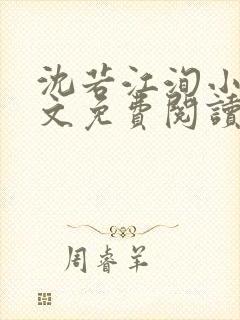 沈若江洵小
文免費閱讀
周睿羊